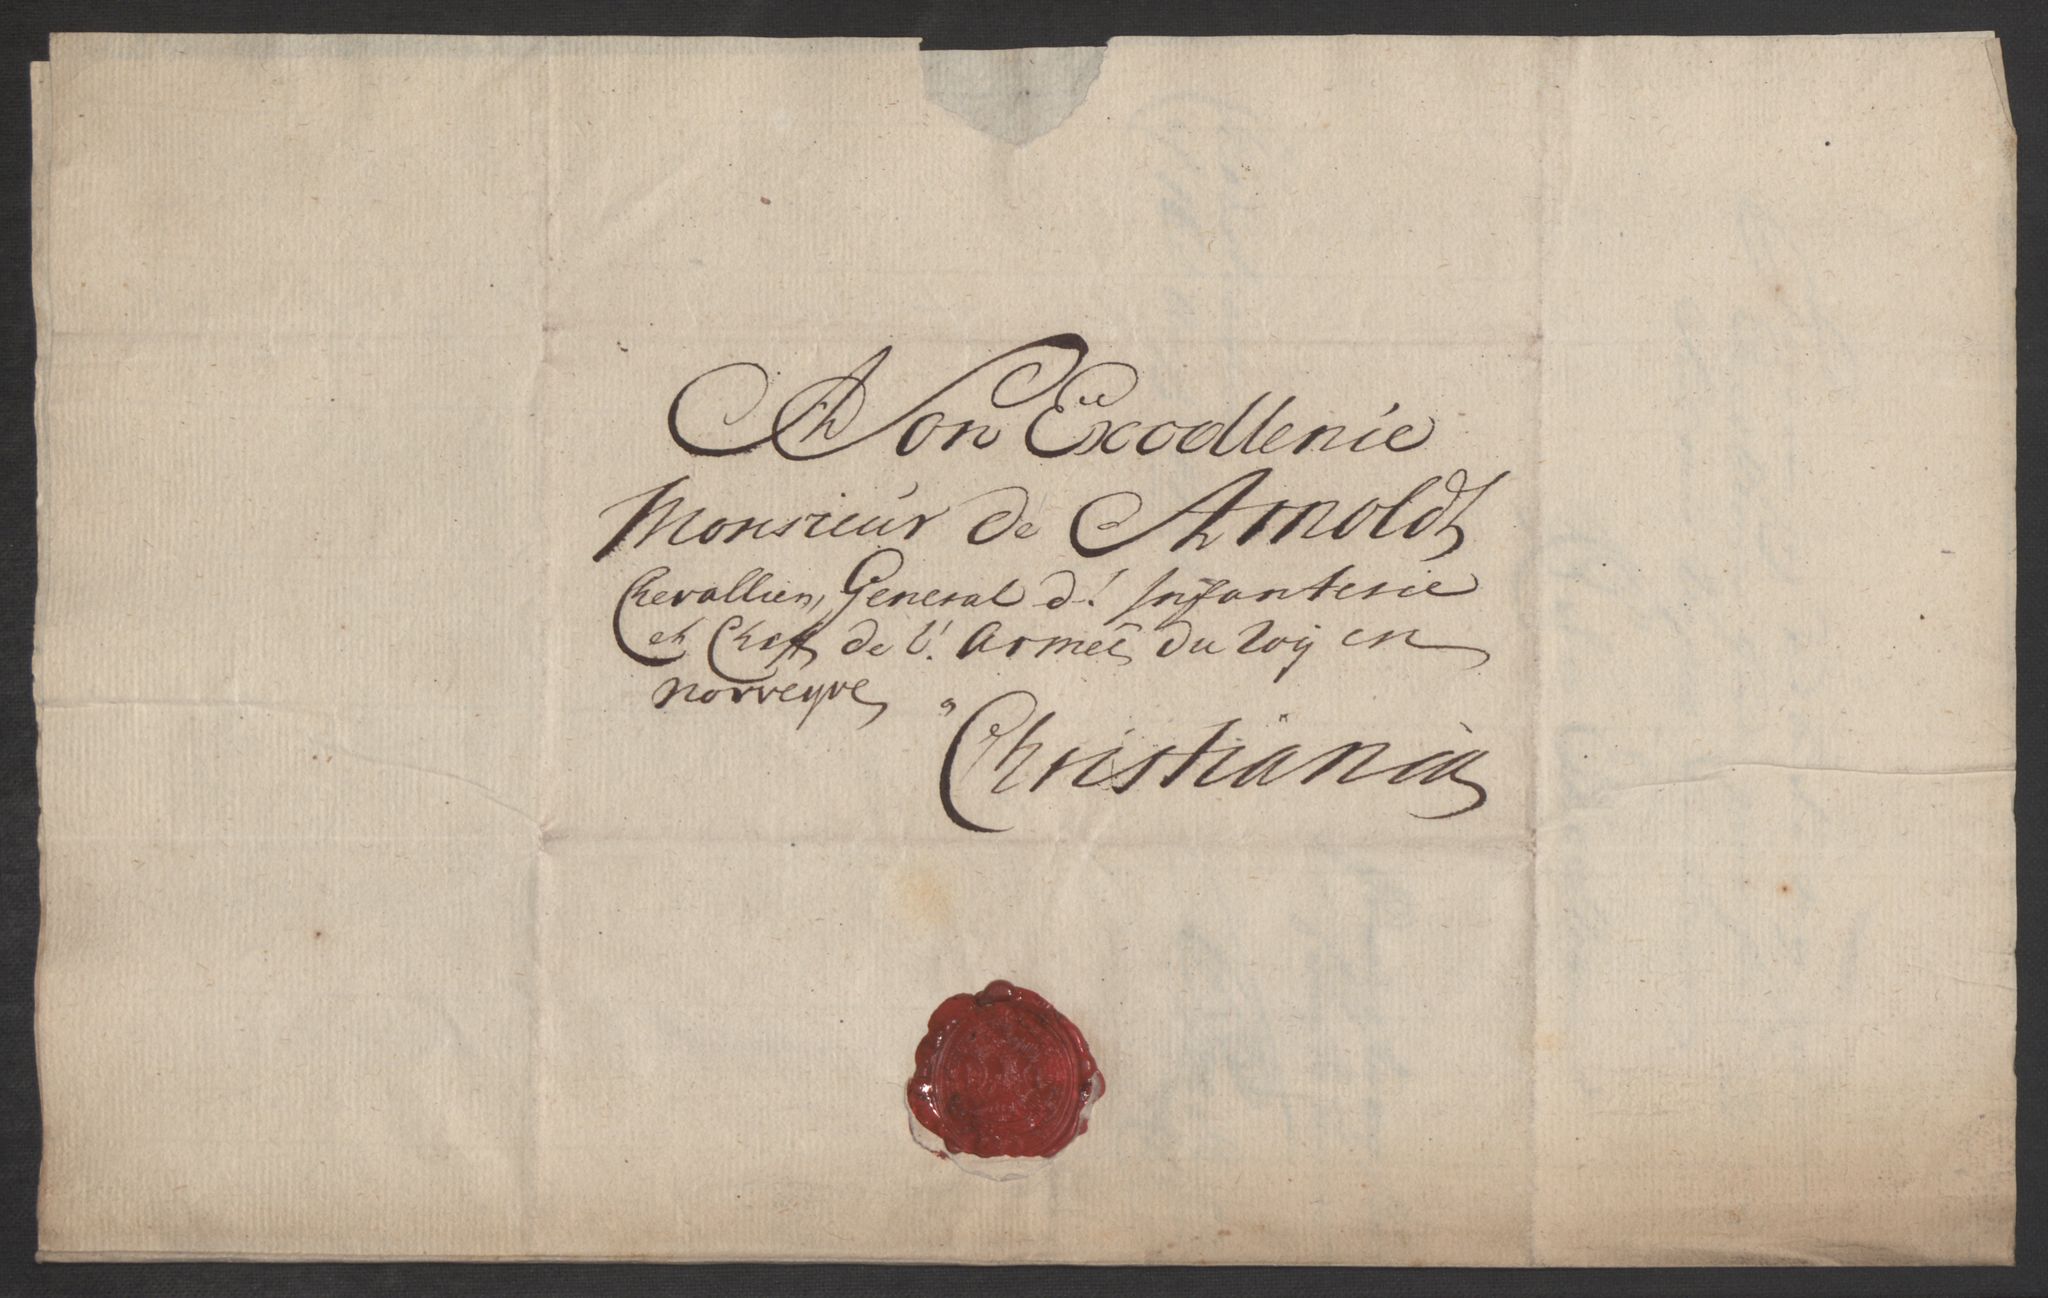 A Son Excellence
Monsieur de Arnoldt
Chevallier, General d'Infanterie
et Cheff de l'Armeé du Roy en
Norvegve,
Christiania